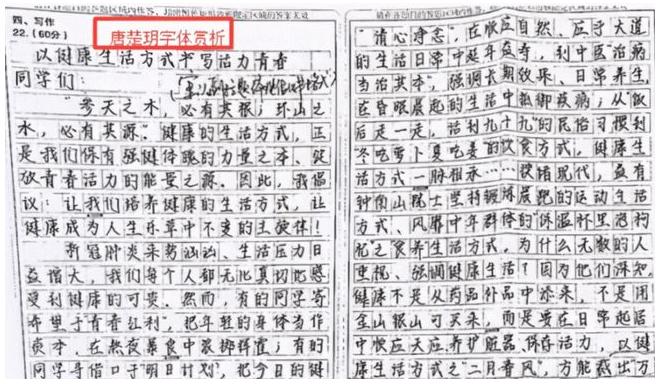 四、写作
22.(60分)
唐楚玥字体赏析
以健康生活方式书写活力青春
同学们:
"参天之木,必有其根;环山之
水,必有其源"健康的生活方式,正
是我们保有强健体魄的力量之本、绽
放青春活力的能量之源。因此,我倡
议:让我们培养健康的生活方式,让
健康成为人生乐章中不变的主旋律!
新冠肺炎来势汹汹、生活压力日
益增大,我们每个人都无比真切地感
受到健康的可贵。然而,有的同学寄
希望于"青春红利",把年轻的身体当作
资本,在熬夜暴食中
同学寄借口于"明日计划",把今日的健
"清心净志,在顺应自然、应乎大道
的生活日常中延年益寿,到中医"治病
当治其本",强调长期效果、日常养生,
在昏眠晨起的生活中抵御疾病;从"饭
后走一走,活到九十九"的民俗习惯到
冬吃萝卜夏吃姜的饮食方式,健康生
活方式一脉相承……放诸现代,益有
钟南山院士坚持锻炼晨跑的运动生活
方式、风靡中年群体的"保温杯里泡枸
杞"之食养生活方式,为什么无数的人
重视、强调健康生活?因为他们深知,
健康不是从药品补品中添来,不是用
金山银山可买来,而是要在日常起居
中顺应天应养护脏器、保存活力,以健
康生活方式之"二月春风",方能裁出"万